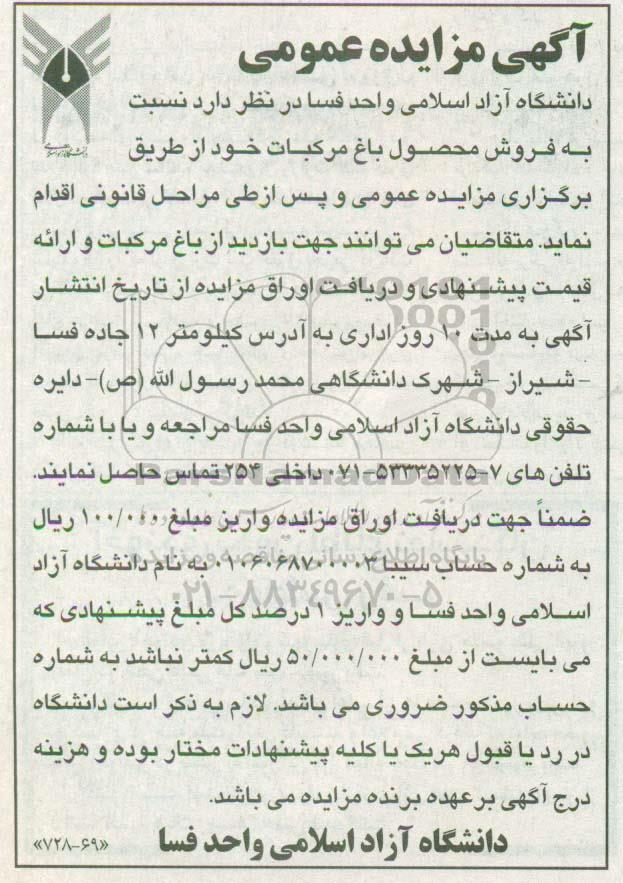 آگهی مزایده عمومی
دانشگاه آزاد اسلامی واحد فسا در نظر دارد نسبت
به فروش محصول باغ مرکبات خود از طریق
برگزاری مزایده عمومی و پس ازطی مراحل قانونی اقدام
نماید. متقاضیان می توانند جهت بازدید از باغ مرکبات و ارائه
قیمت پیشنهادی و دریافت اوراق مزایده از تاریخ انتشار
آگهی به مدت ۱۰ روز اداری به آدرس کیلومتر ۱۲ جاده فسا
- شیراز - شهرک دانشگاهی محمد رسول الله (ص)- دایره
حقوقی دانشگاه آزاد اسلامی واحد فسا مراجعه و یا با شماره
تلفن های ۷-۵۳۳۳۵۲۲۵-۰۷۱ داخلی ۲۵۴ تماس حاصل نمایند.
ParsNamadData
ضمناً جهت دریافت اوراق مزایده واریز مبلغ ۱۰۰/۰۰۰ ریال
پایگاه اطلاع رسانی مناقصه و مزایده
به شماره حساب سیبا به نام دانشگاه آزاد
۰۲۱-۸۸۳۴۹۶۷۰-۵
اسلامی واحد فسا و واریز ۱ درصد کل مبلغ پیشنهادی که
می بایست از مبلغ ۵۰/۰۰۰/۰۰۰ ریال کمتر نباشد به شماره
حساب مذکور ضروری می باشد. لازم به ذکر است دانشگاه
در رد یا قبول هریک یا کلیه پیشنهادات مختار بوده و هزینه
درج آگهی بر عهده برنده مزایده می باشد.
دانشگاه آزاد اسلامی واحد فسا
«۷۲۸-۶۹»